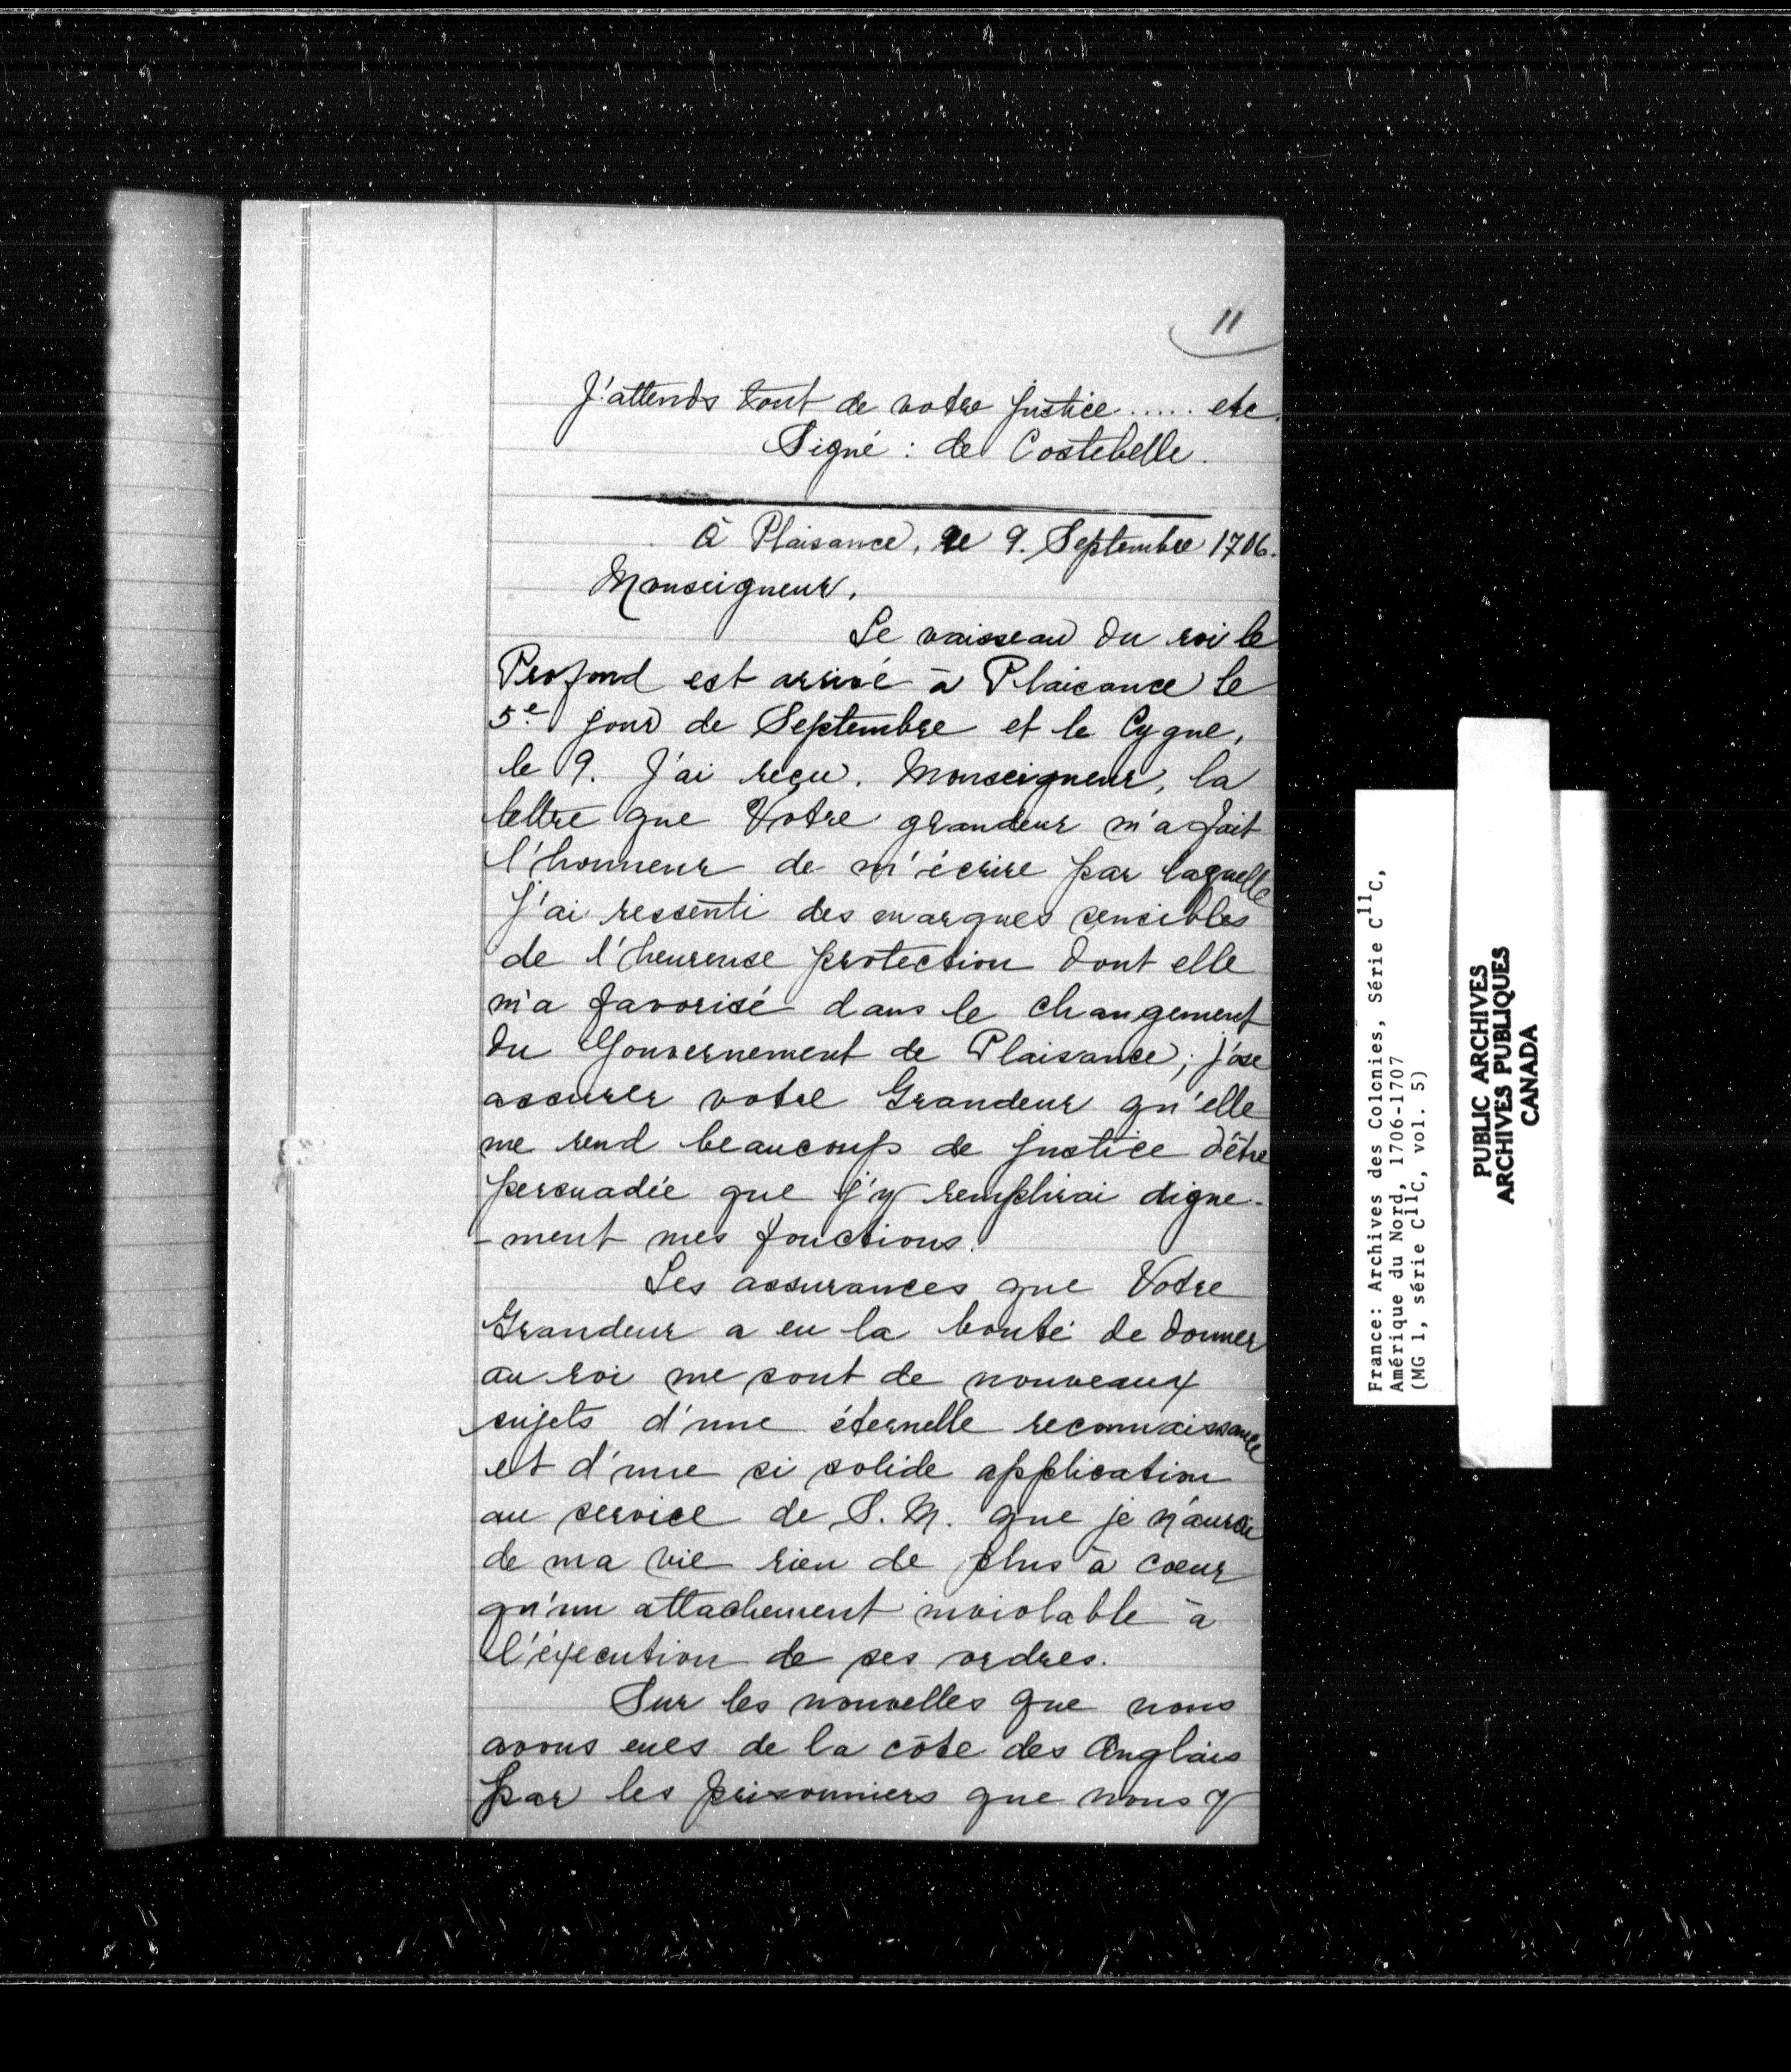 11
J'attends tout de votre justice...... etc.
Signé : de Costebelle.
À Plaisance, le 9. Septembre 1706.
Monseigneur,
Le vaisseau du roi le
Profond est arrivé à Plaisance le
5e jour de Septembre et le Cygne,
le 9. J'ai reçu, Monseigneur, la
lettre que Votre grandeur m'a fait
l'honneur de m'écrire par laquelle
j'ai ressenti des marques sensibles
de l'heureuse protection dont elle
m'a favorisé dans le changement
du Gouvernement de Plaisance; j'ose
assurer votre Grandeur qu'elle
me rend beaucoup de justice d'être
persuadée que j'y remplirai digne-
-ment mes fonctions.
Les assurances que Votre
Grandeur a eu la bonté de donner
au roi me sont de nouveaux
sujets d'une éternelle reconnaissance
et d'une si solide application
au service de S. M. que je n'aurai
de ma vie rien de plus à coeur
qu'un attachement inviolable à
l'éxecution de ses ordres.
Sur les nouvelles que nous
avons eues de la côte des Anglais
par les prisonniers que nous y
France: Archives des Colonies, Série C11C,
Amérique du Nord, 1706-1707
(MG 1, série C11C, vol. 5)
PUBLIC ARCHIVES
ARCHIVES PUBLIQUES
CANADA